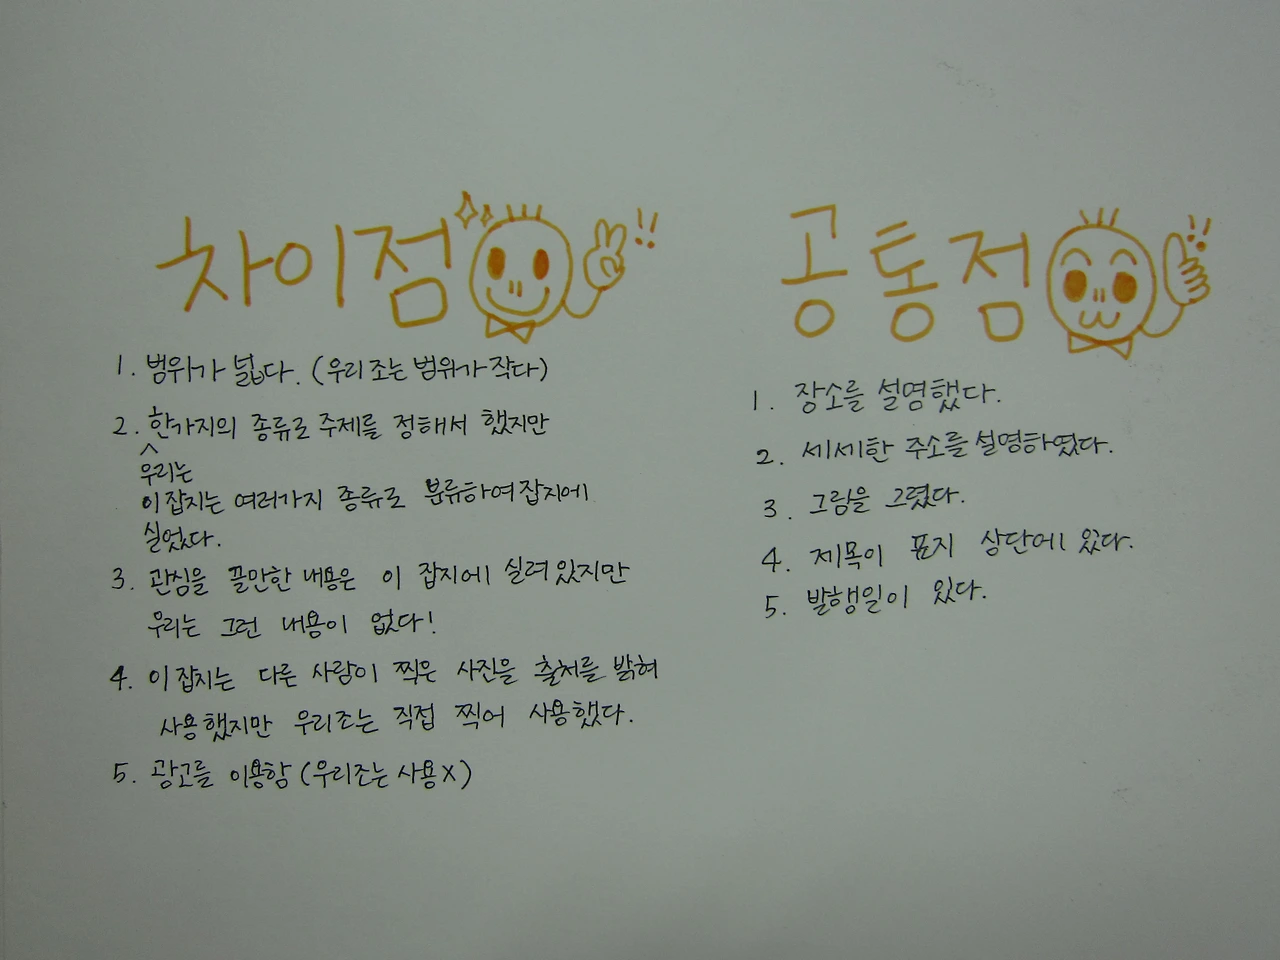 차이점 !!
1. 범위가 넓다. (우리조는 범위가 작다)
2. 한가지의 종류로 주제를 정해서 했지만
우리는
이 잡지는 여러가지 종류로 분류하여 잡지에
실었다.
3. 관심을 끌만한 내용은 이 잡지에 실려있지만
우리는 그런 내용이 없다!
4. 이 잡지는 다른 사람이 찍은 사진을 출처를 밝혀
사용했지만 우리조는 직접 찍어 사용했다.
5. 광고를 이용함 (우리조는 사용X)
공통점 !!
1. 장소를 설명했다.
2. 세세한 주소를 설명하였다.
3. 그림을 그렸다.
4. 제목이 표지 상단에 있다.
5. 발행일이 있다.